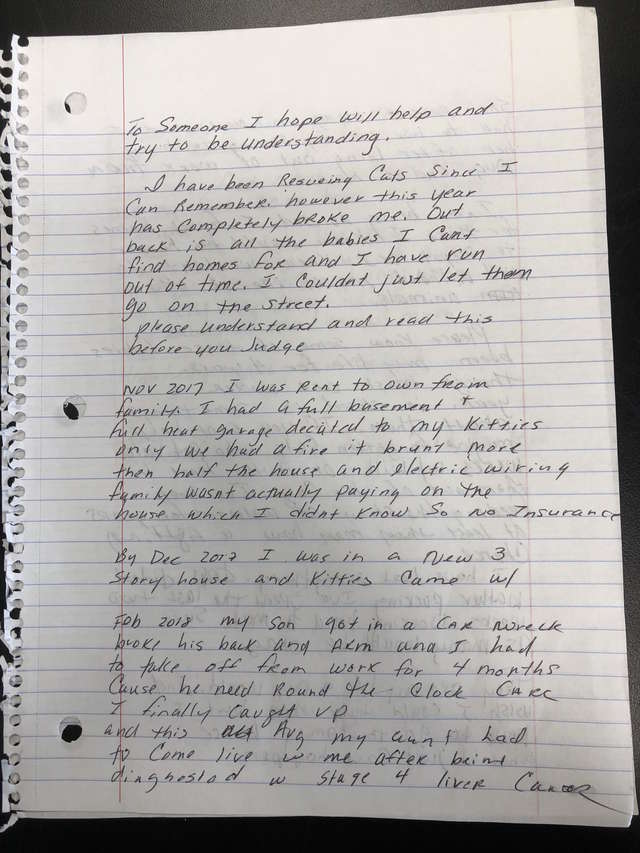 To Someone I hope will help and
try to be understanding.
I have been Rescueing Cats Since I
Can Remember. however this year
has Completely broke me. Out
back is all the babies I Cant
find homes for and I have run
out of time. I Couldnt just let them
go on the street.
please understand and read this
before you Judge
NOV 2017 I was Rent to own from
family. I had a full basement +
full heat garage decided to my Kitties
only we had a fire it brunt more
then half the house and electric wiring
family wasnt actually paying on the
house which I didnt know So no Insurance
By Dec 2017 I was in a New 3
Story house and Kitties Came w/
Feb 2018 my Son got in a CAR wreck
broke his back and ARM and I had
to take off from work for 4 months
Cause he need Round the Clock Care
I finally Caught up
and this Aug my aunt had
to Come live w me after being
diagnested w Stage 4 liver Cancer